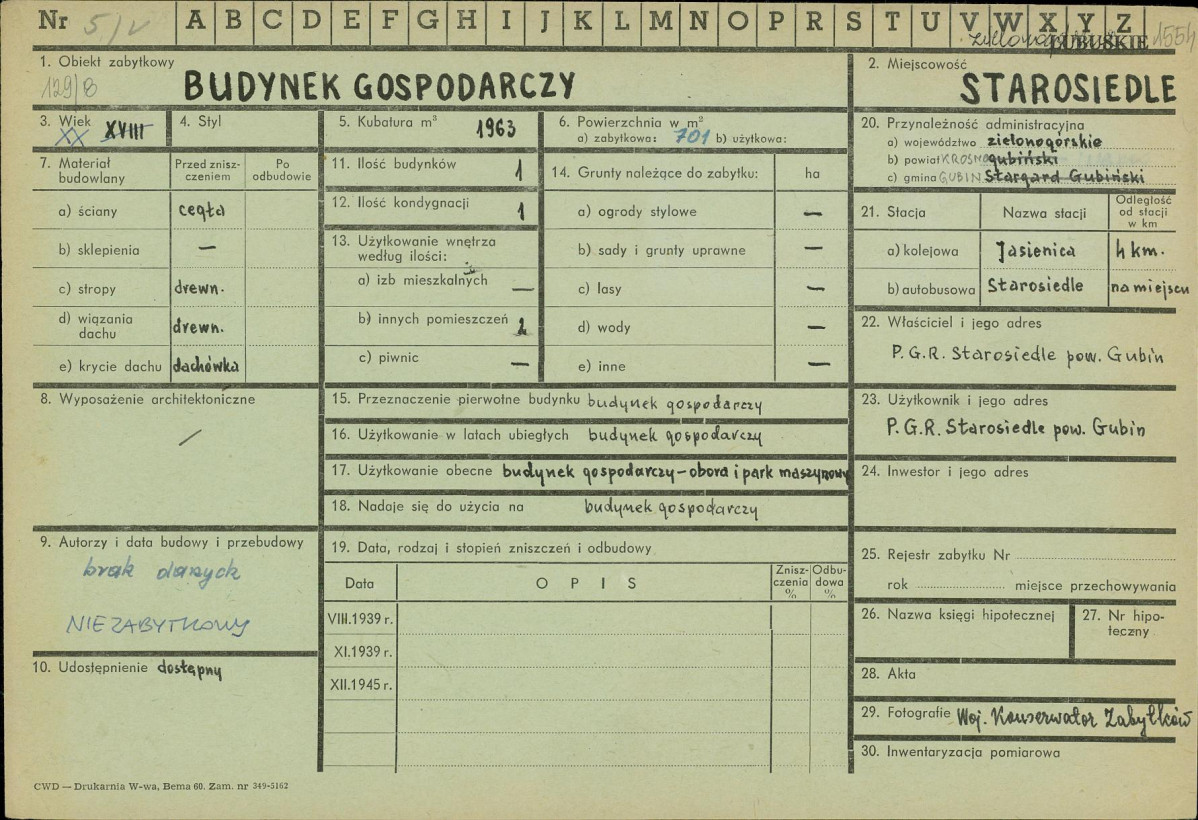 Nr 5/V A B C D E F G H I J K L M N O P R S T U V W X Y Z
LUBUSKIE
1. Obiekt zabytkowy
129/8 BUDYNEK GOSPODARCZY
2. Miejscowość
STAROSIEDLE
3. Wiek
XX XVIII
4. Styl
5. Kubatura m³
1963
6. Powierzchnia w m²
a) zabytkowa: 701 b) użytkowa:
7. Materiał budowlany
Przed zniszczeniem
Po odbudowie
a) ściany cegła
b) sklepienia —
c) stropy drewn.
d) wiązania dachu drewn.
e) krycie dachu dachówka
8. Wyposażenie architektoniczne
/
9. Autorzy i data budowy i przebudowy
brak danych
NIEZABYTKOWY
10. Udostępnienie dostępny
11. Ilość budynków 1
12. Ilość kondygnacji 1
13. Użytkowanie wnętrza
według ilości:
a) izb mieszkalnych —
b) innych pomieszczeń 2
c) piwnic —
14. Grunty należące do zabytku: ha
a) ogrody stylowe —
b) sady i grunty uprawne —
c) lasy —
d) wody —
e) inne —
15. Przeznaczenie pierwotne budynku budynek gospodarczy
16. Użytkowanie w latach ubiegłych budynek gospodarczy
17. Użytkowanie obecne budynek gospodarczy – obora i park maszynowy
18. Nadaje się do użycia na budynek gospodarczy
19. Data, rodzaj i stopień zniszczeń i odbudowy
Data OPIS Zniszczenia % Odbudowa %
VIII.1939 r.
XI.1939 r.
XII.1945 r.
20. Przynależność administracyjna
a) województwo zielonogórskie
b) powiat KROSNO gubiński
c) gmina GUBIN Stargard Gubiński
21. Stacja Nazwa stacji Odległość od stacji w km
a) kolejowa Jasienica 4 km.
b) autobusowa Starosiedle na miejscu
22. Właściciel i jego adres
P.G.R. Starosiedle pow. Gubin
23. Użytkownik i jego adres
P.G.R. Starosiedle pow. Gubin
24. Inwestor i jego adres
25. Rejestr zabytku Nr
rok miejsce przechowywania
26. Nazwa księgi hipotecznej
27. Nr hipoteczny
28. Akta
29. Fotografie Woj. Konserwator Zabytków
30. Inwentaryzacja pomiarowa
CWD — Drukarnia W-wa, Bema 60. Zam. nr 349-5162